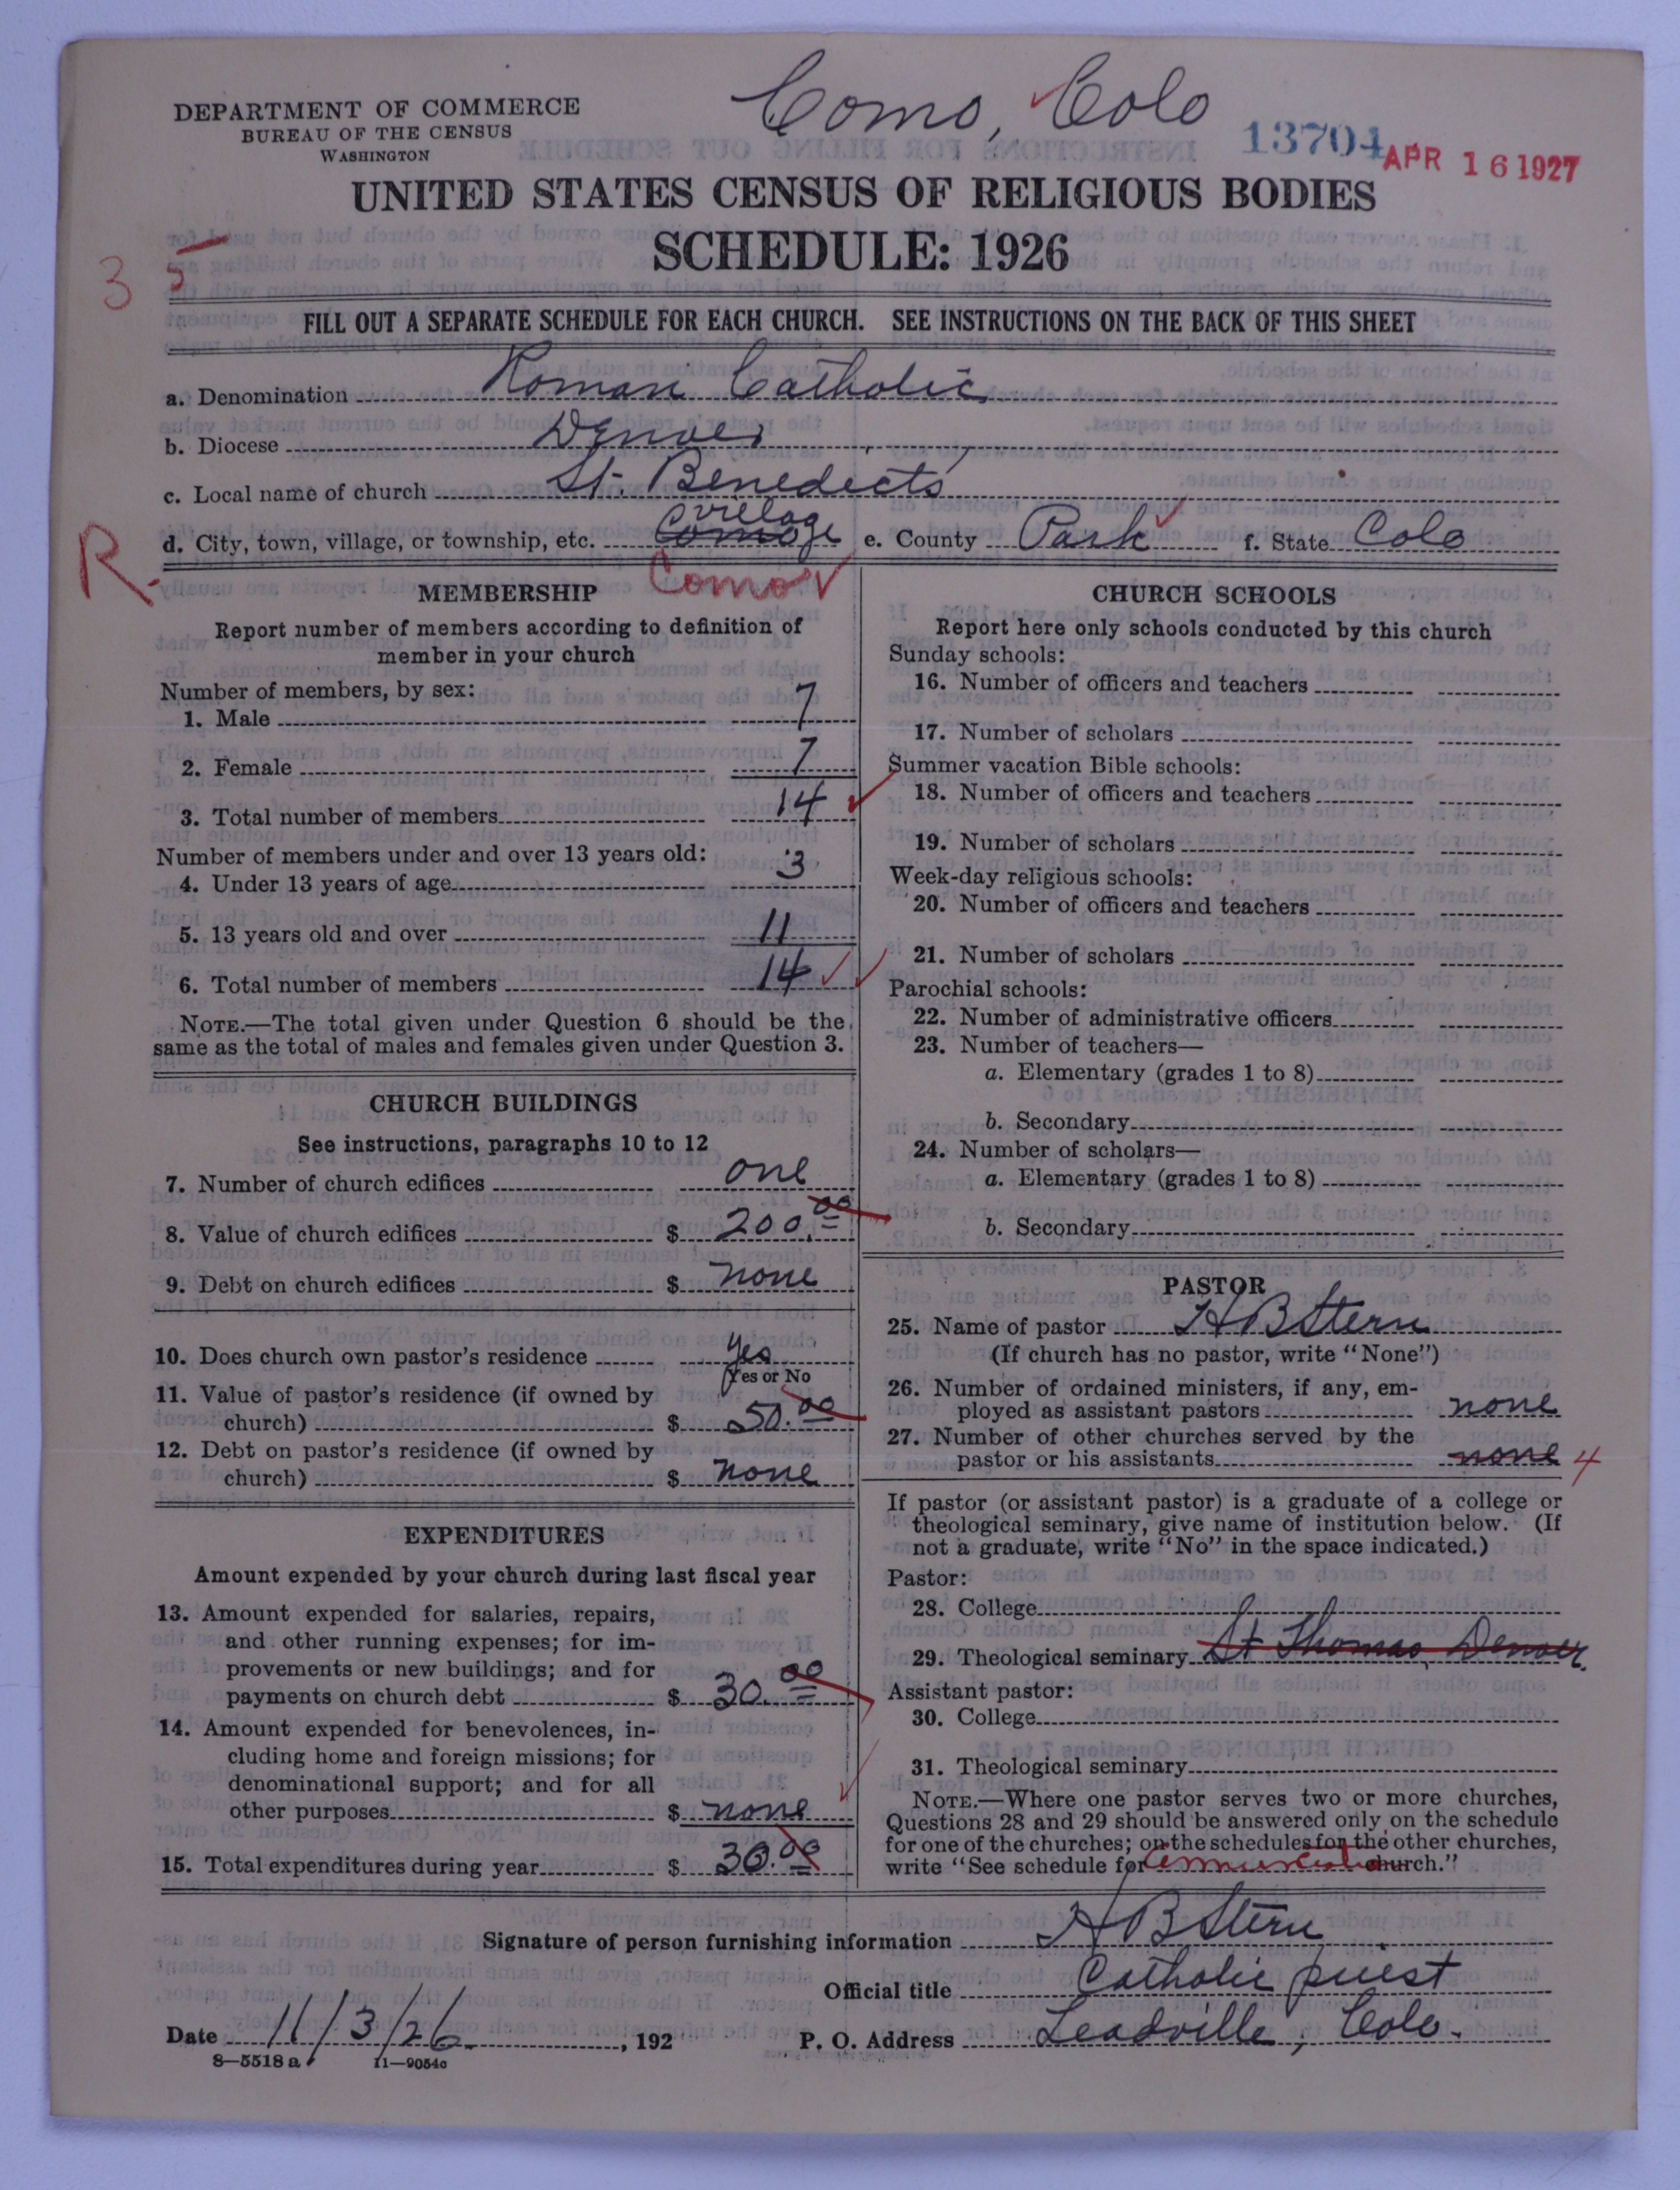 Como, Colo
DEPARTMENT OF COMMERCE
BUREAU OF THE CENSUS
WASHINGTON
13704
APR 16 1927
UNITED STATES CENSUS OF RELIGIOUS BODIES
SCHEDULE: 1926
3 5
FILL OUT A SEPARATE SCHEDULE FOR EACH CHURCH. SEE INSTRUCTIONS ON THE BACK OF THIS SHEET
a. Denomination Roman Catholic
b. Diocese Denver
c. Local name of church St. Benedicts
d. City, town, village, or township, etc. Como village e. County Park f. State Colo
R.
Como
MEMBERSHIP
Report number of members according to definition of
member in your church
Number of members, by sex:
1. Male 7
2. Female 7
3. Total number of members 14
Number of members under and over 13 years old:
4. Under 13 years of age 3
5. 13 years old and over 11
6. Total number of members 14
NOTE.—The total given under Question 6 should be the
same as the total of males and females given under Question 3.
CHURCH BUILDINGS
See instructions, paragraphs 10 to 12
7. Number of church edifices one
8. Value of church edifices $ 200.00
9. Debt on church edifices $ none
10. Does church own pastor's residence yes
(Yes or No
11. Value of pastor's residence (if owned by
church) $ 50.00
12. Debt on pastor's residence (if owned by
church) $ none
EXPENDITURES
Amount expended by your church during last fiscal year
13. Amount expended for salaries, repairs,
and other running expenses; for im-
provements or new buildings; and for
payments on church debt $ 30.00
14. Amount expended for benevolences, in-
cluding home and foreign missions; for
denominational support; and for all
other purposes $ none
15. Total expenditures during year $ 30.00
CHURCH SCHOOLS
Report here only schools conducted by this church
Sunday schools:
16. Number of officers and teachers
17. Number of scholars
Summer vacation Bible schools:
18. Number of officers and teachers
19. Number of scholars
Week-day religious schools:
20. Number of officers and teachers
21. Number of scholars
Parochial schools:
22. Number of administrative officers
23. Number of teachers—
a. Elementary (grades 1 to 8)
b. Secondary
24. Number of scholars—
a. Elementary (grades 1 to 8)
b. Secondary
PASTOR
25. Name of pastor H B Stern
(If church has no pastor, write "None")
26. Number of ordained ministers, if any, em-
ployed as assistant pastors none
27. Number of other churches served by the
pastor or his assistants none 4
If pastor (or assistant pastor) is a graduate of a college or
theological seminary, give name of institution below. (If
not a graduate, write "No" in the space indicated.)
Pastor:
28. College
29. Theological seminary St Thomas, Denver.
Assistant pastor:
30. College
31. Theological seminary
NOTE.—Where one pastor serves two or more churches,
Questions 28 and 29 should be answered only on the schedule
for one of the churches; on the schedules for the other churches,
write "See schedule for church."
Signature of person furnishing information H B Stern
Official title Catholic priest
Date 11/3/26, 192 P. O. Address Leadville, Colo.
8—5518 a 11—9054c